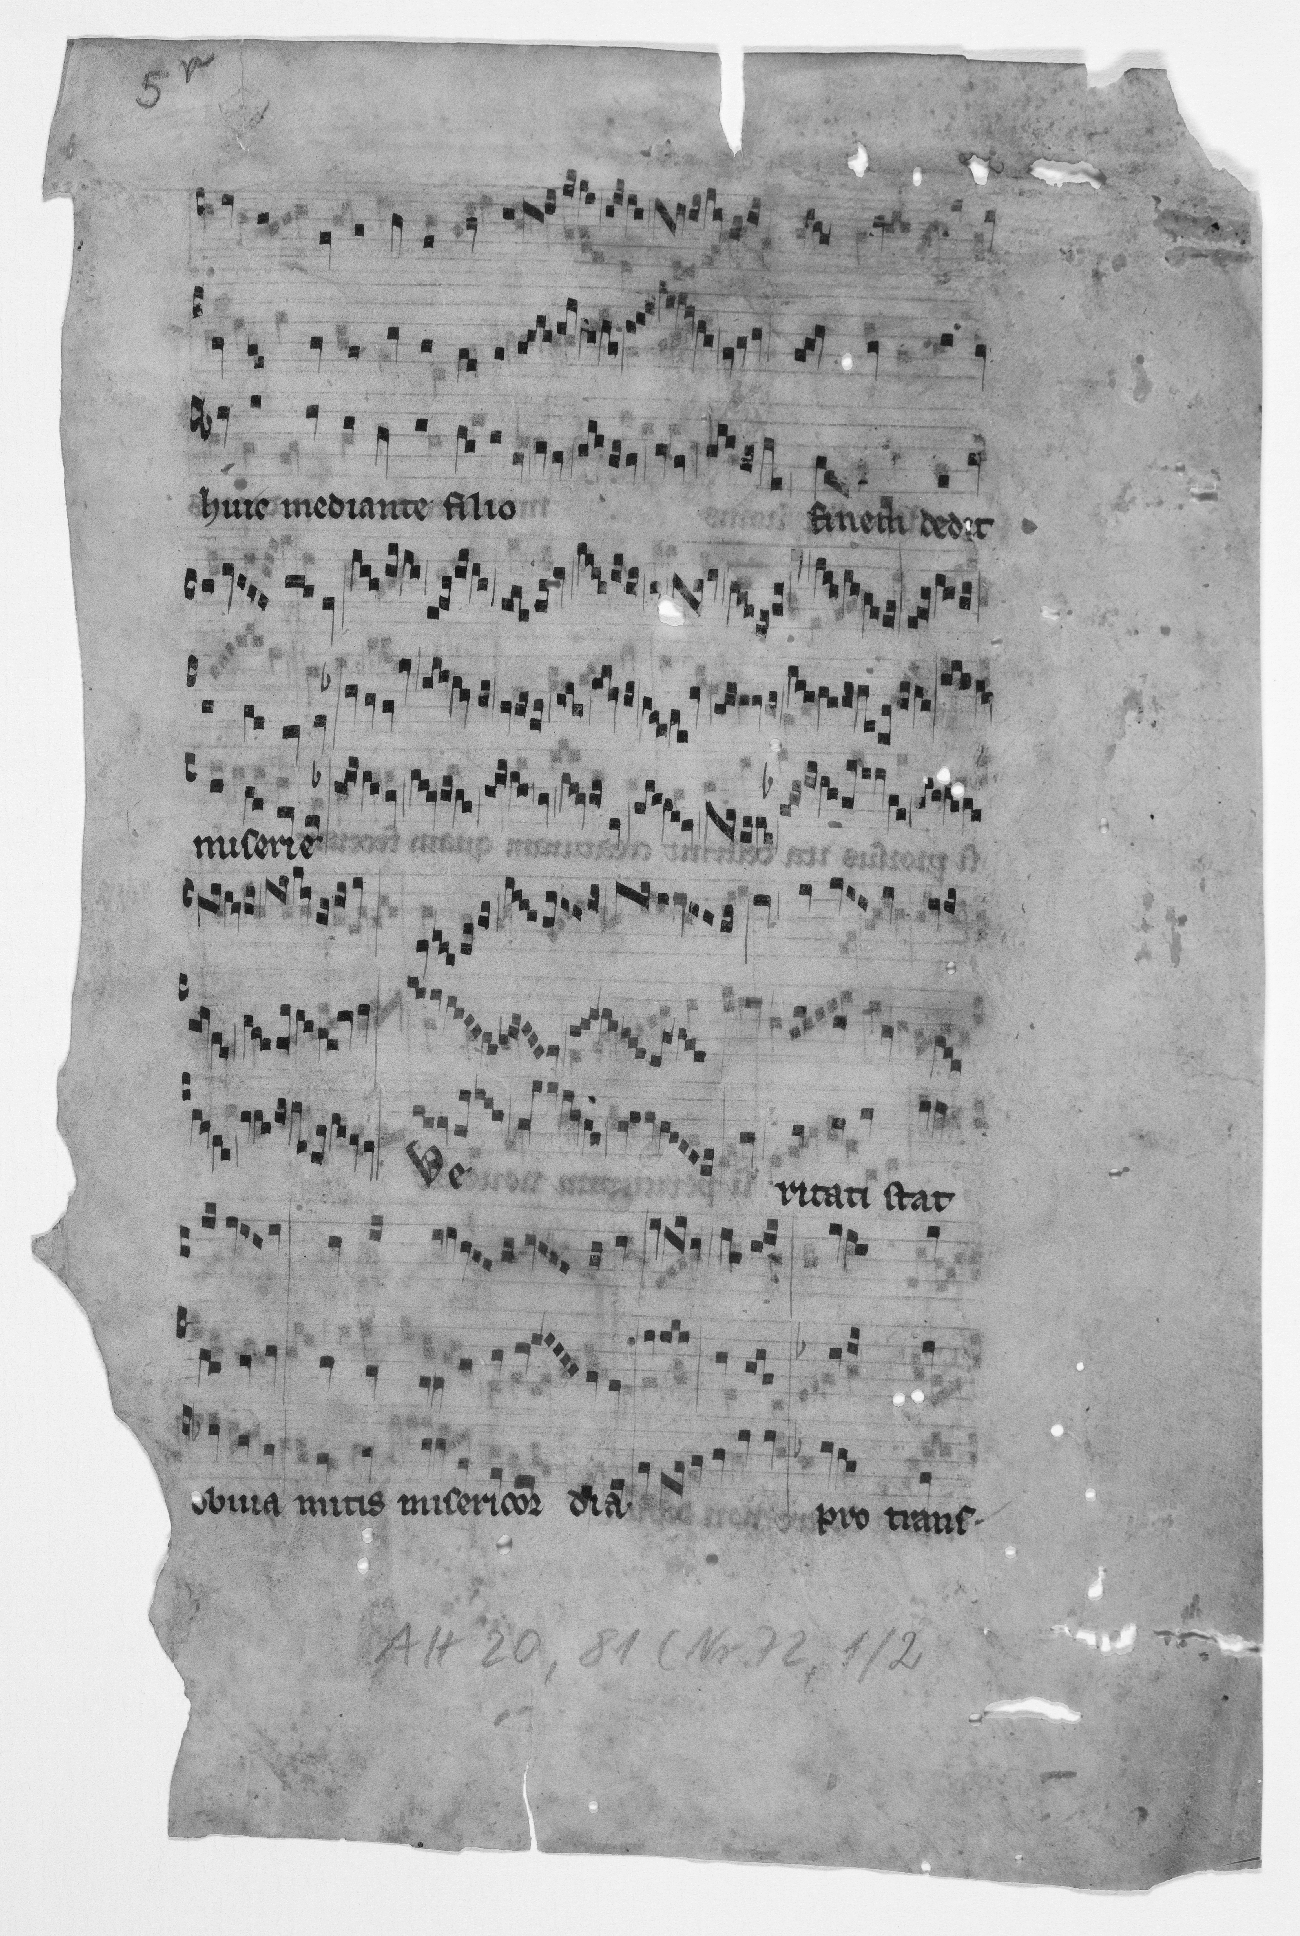 5 r
huic mediante filio finem dedit
miserie
Ve ritati stat
obvia mitis misericor dia pro trans-
AH 20, 81 (Nr. 72, 1/2